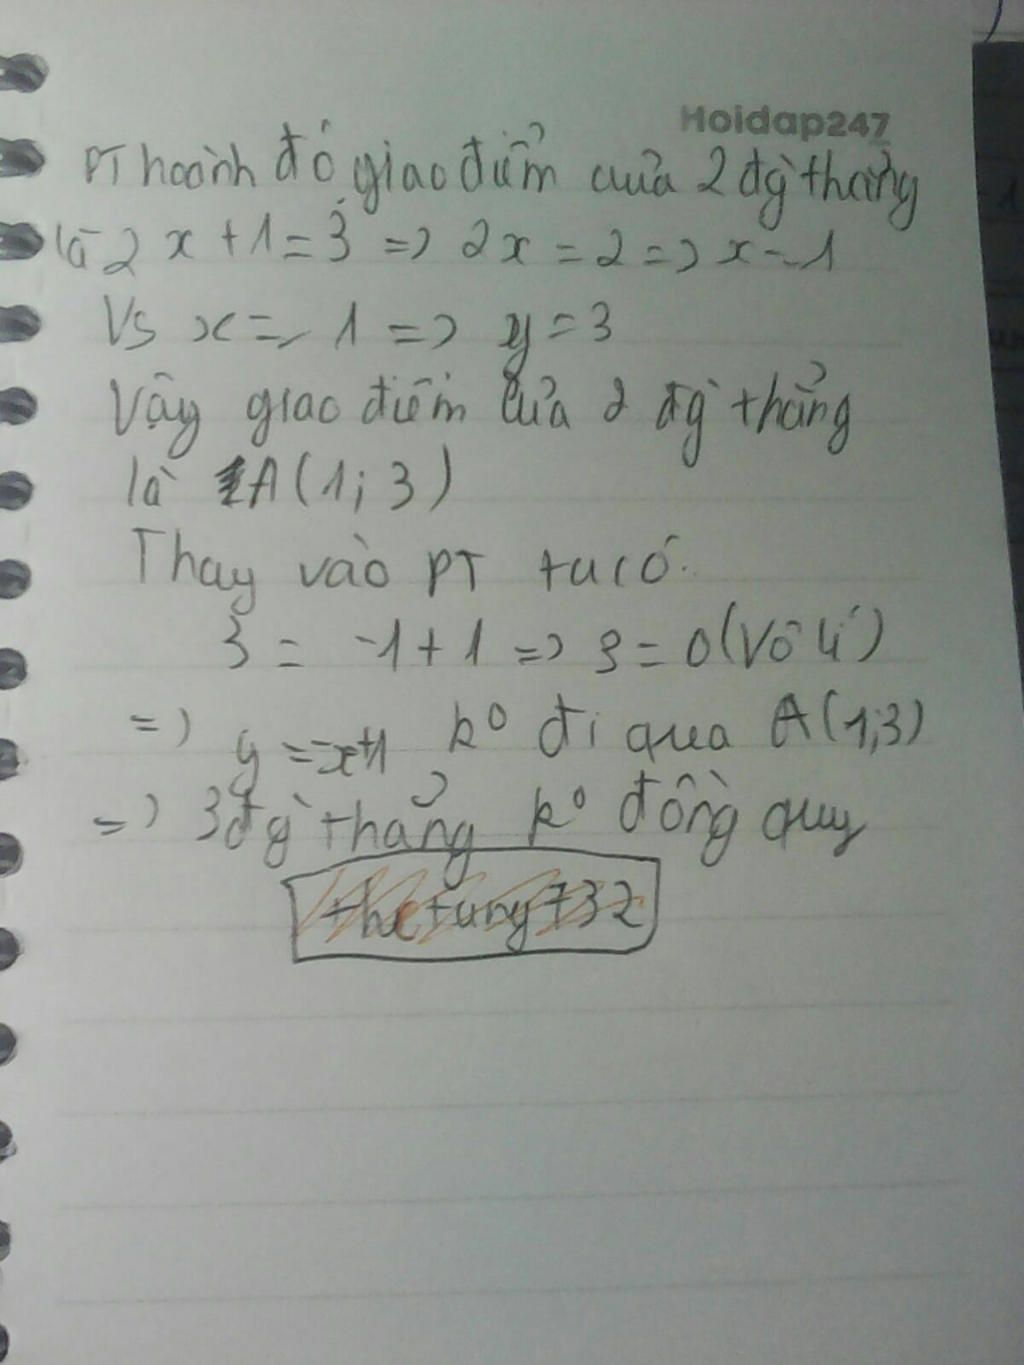 Hoidap247
PT hoành độ giao điểm của 2 đg thẳng
là 2x + 1 = 3 => 2x = 2 => x = 1
Vs x = 1 => y = 3
Vậy giao điểm của 2 đg thẳng
là A(1; 3)
Thay vào PT ta có
3 = -1 + 1 => 3 = 0 (Vô lí)
=> y = -x+1 k° đi qua A(1;3)
=> 3 đg thẳng k° đồng quy
thetung732